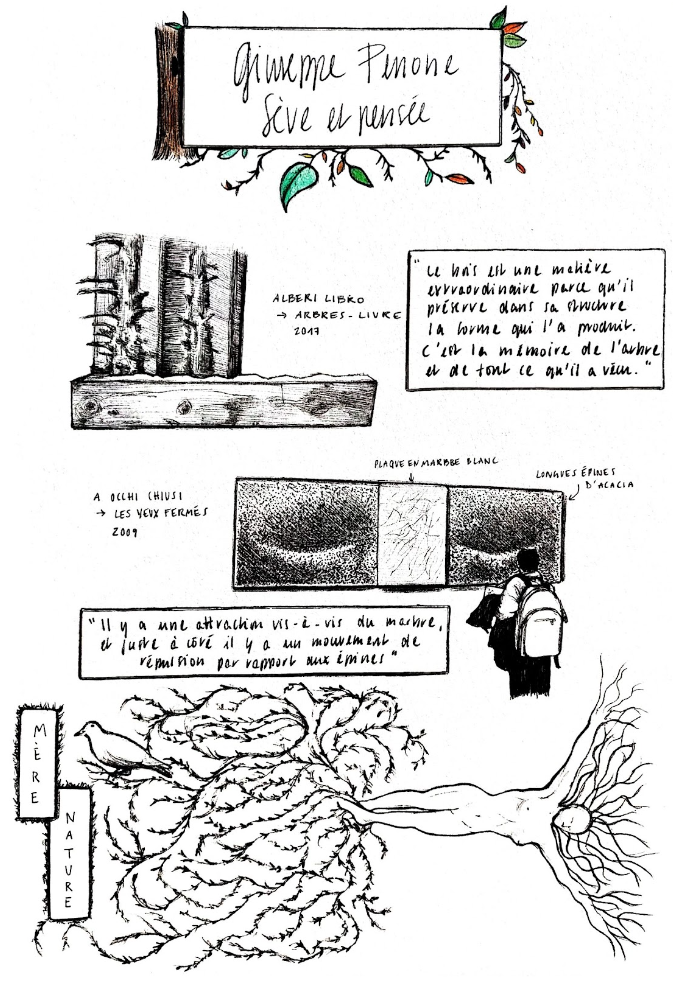 Giuseppe Penone
Sève et pensée
ALBERI LIBRO
→ ARBRES-LIVRE
2017
"Le bois est une matière
extraordinaire parce qu'il
préserve dans sa structure
la forme qui l'a produit.
C'est la mémoire de l'arbre
et de tout ce qu'il a vécu."
PLAQUE EN MARBRE BLANC
LONGUES ÉPINES
D'ACACIA
A OCCHI CHIUSI
→ LES YEUX FERMÉS
2009
"Il y a une attraction vis-à-vis du marbre,
et juste à côté il y a un mouvement de
répulsion par rapport aux épines"
MÈRE
NATURE